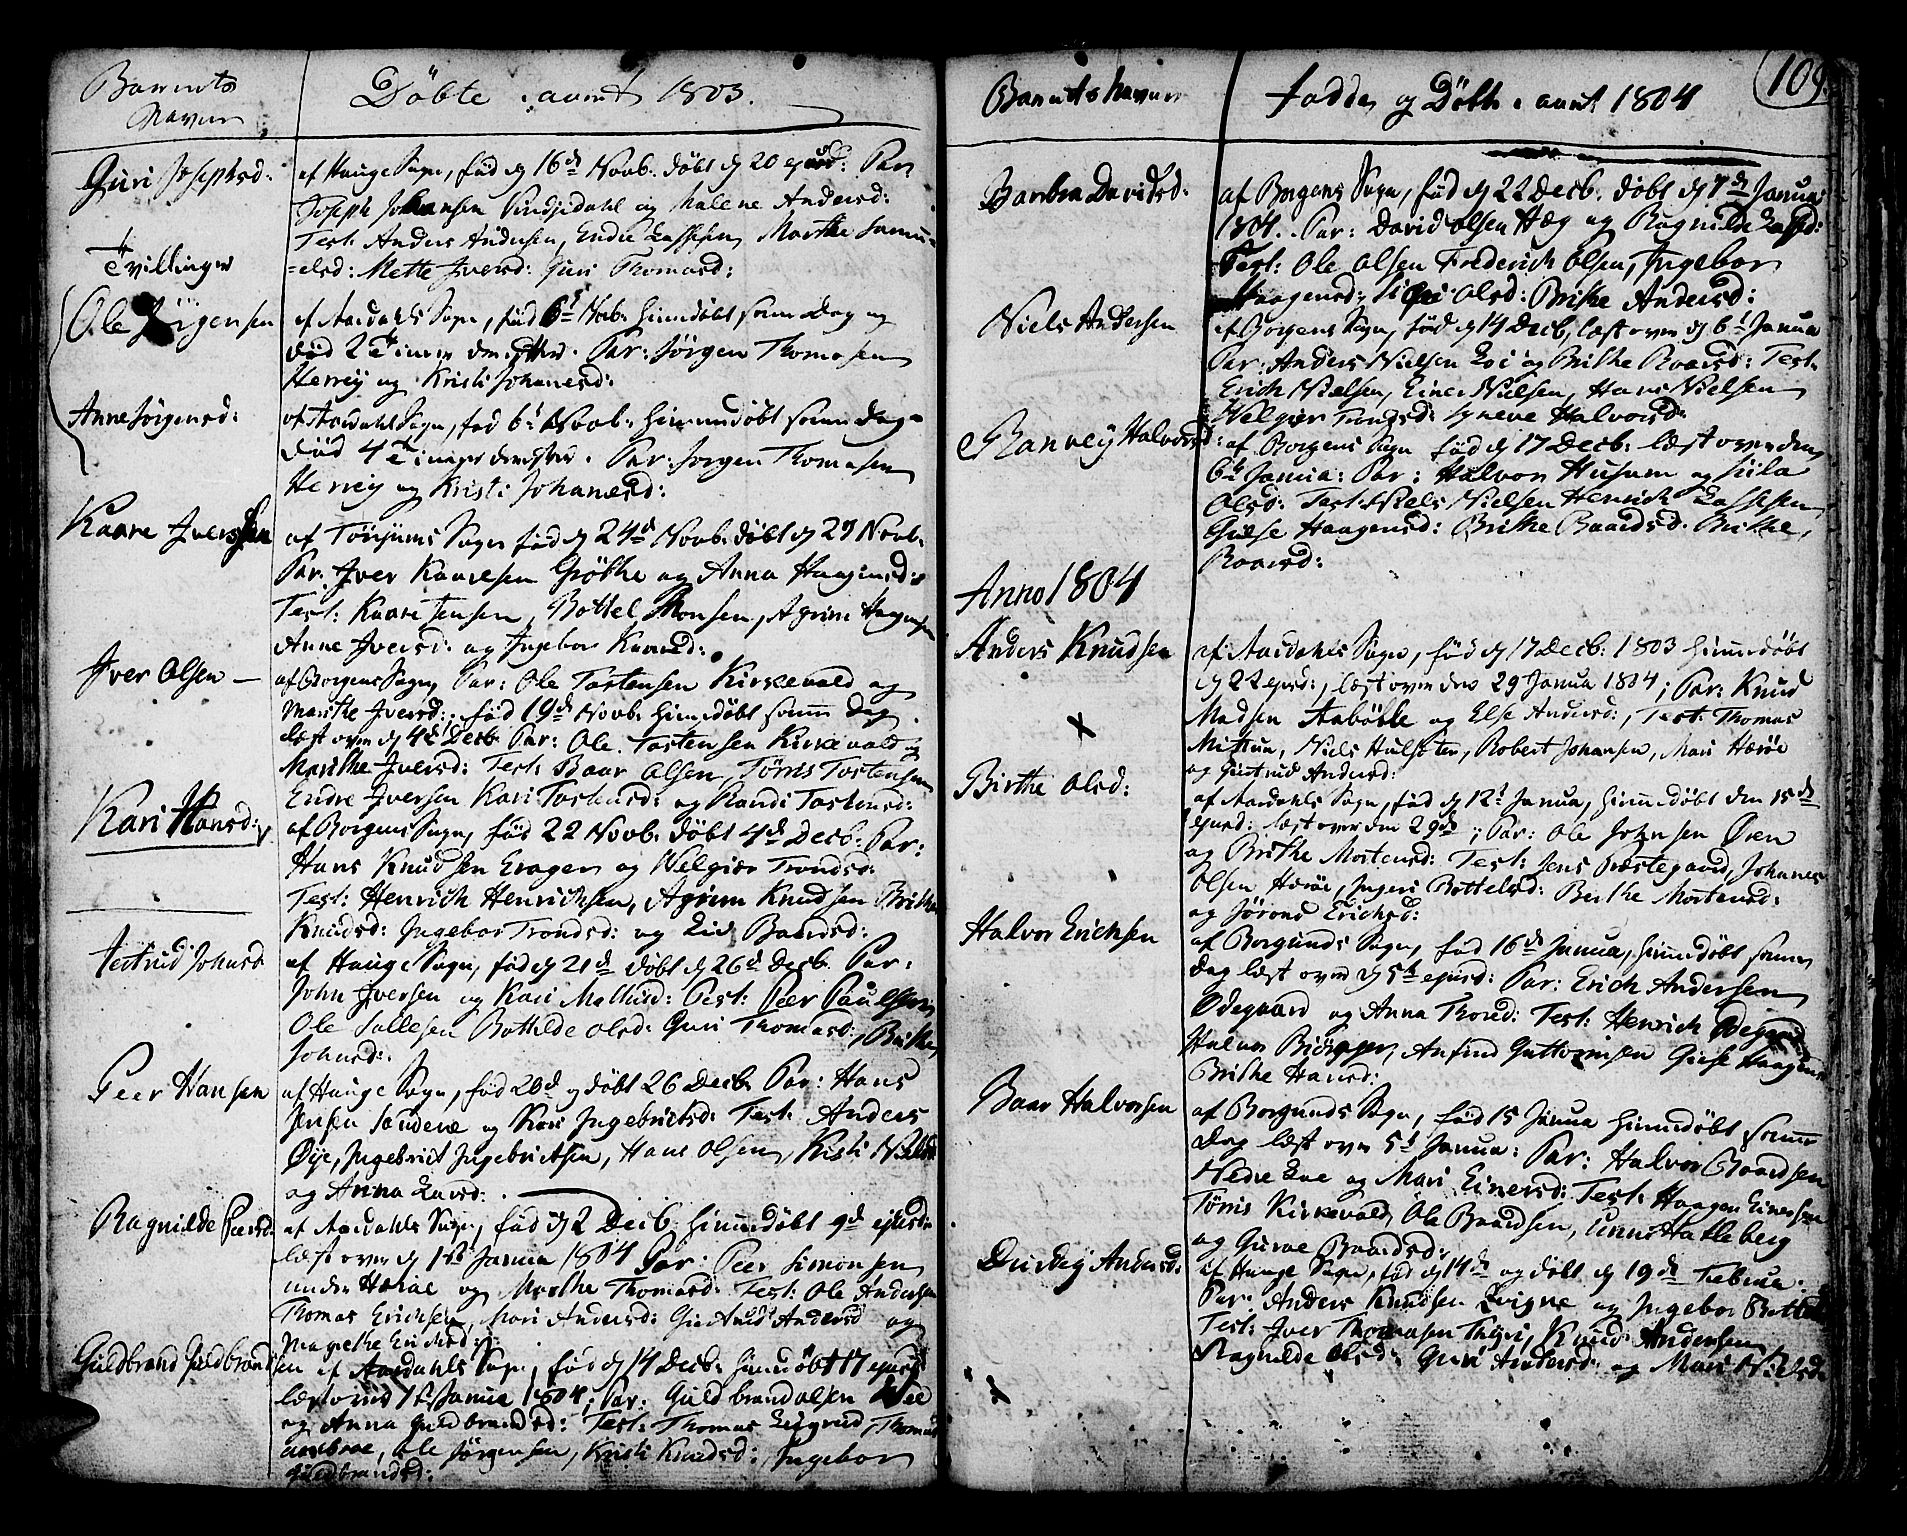 Barnets
Navne
Döbte 1803.
Guri Josephsd:
af Hauge Sogn, föd d 16d Novb: döbt d 20 ejusd: Par
Joseph Johansen Lindsedahl og Malene Andersd:
Test: Anders Andersen, Endre Lassesen Marthe Samu=
=elsd: Mette Iversd: Guri Thomasd:
Tvillinger
Ole Jörgensen
af Aardahls Sogn, föd 6t Novb. hiemdöbt samme Dag og
död 2 Timer derefter. Par: Jörgen Thomasen
Herrey og Kristi Johanesd:
Anne Jörgensd:
af Aardahls Sogn, föd 6t Novb. hiemmedöbt samme Dag=
död 4 Timer derefter. Par: Jörgen Thomasen
Herrey og Kristi Johanesd:
Kaare Iversen
af Tönjums Sogn föd d 24d Novb: döbt d 29 Novb.
Par. Iver Kaaresen Gröthe og Anna Haagensd:
Test: Kaare Jensen, Bottel Monsen, Agrim Haagensen
Anne Iversd: og Ingebor Kaaresd:
Iver Olsen —
af Borgens Sogn, Par: Ole Tostensen Kirkevold og
Marthe Iversd: föd 19d Novb. hiemdöbt samme Dag.
læst over d 4d Decb. Par: Ole Tostensen Kirkevold og
Marthe Iversd: Test: Baar Olsen, Tönis Tostensen
Endre Iversen Kari Tostensd: og Randi Tostensd:
Kari Hansd:
af Borgens Sogn, föd 22 Novb. döbt 4d Decb: Par:
Hans Knudsen Eragen og Velgier Trondsd:
Test: Henrich Henrichsen, Agrim Knudsen Brithe
Knudsd: Ingebor Trondsd: og Liv Baarsd:
Jertrud Johnsd
af Hauge Sogn, föd d 21d döbt d 26d Decb. Par:
John Iversen og Kari Mollusd: Test: Peer Paulsen
Ole Sallesen Bothilde Olsd: Guri Thomasd: Brithe
Johnsd:
Peer Hansen
af Hauge Sogn, föd 20d og döbt 26 Decb. Par: Hans
Jensen Sandene og Kari Ingebrictsd: Test: Anders
Öye, Ingebrict Ingebrictsen, Hans Olsen, Kristi Nielsd
og Anna Larsd:
Ragnilde Peersd:
af Aardahls Sogn, föd d 2 Decb. hiemmedöbt 9d ejusd:
læst over d 1t Janua 1804 Par: Peer Simonsen
under Hæraae og Marthe Thomasd: Test: Ole Andersen
Thomas Erichsen, Mari Andersd: Giertrud Andersd og
Magrethe Erichsd:
Guldbrand Guldbrandsen
af Aardahls Sogn, föd d 14 Decb: hiemdöbt 17 ejusd
læst over 1t Janua 1804; Par: Guldbrand Olsen Wee
og Anna Guldbrandsd: Test: Thomas, Thomas
Ole Jörgensen, Kristi Knudsd:, Ingebor
Guldbrandsd:
109.
Barnets Navne
Födde og Döbte 1804
Barbra Davidsd:
af Borgens Sogn, föd d 22 Decb. döbt d 7de Janua
1804. Par: David Olsen Hæg og Ragnilde Lassesd:
Test: Ole Olsen Frederich Olsen, Ingebor
Haagensd, Sigri Olsd: Brithe Andersd:
Niels Andersen
af Borgens Sogn, föd d 14 Decb, læst over d 6t Janua
Par: Anders Nielsen Loi og Brithe Roarsd: Test:
Erich Nielsen, Einer Nielsen, Hans Nielsen
Velgier Trondsd: Synneve Halvorsd:
Ranvey Halvorsd:
af Borgens Sogn föd d 17 Decb: læst over den
6te Janua: Par: Halvor Husum og Siila
Olsd: Test: Niels Nielsen Henrich Lassesen
Giese Haagensd: Brithe Baardsd. Brithe
Roarsd:
Anno 1804
Anders Knudsen
af Aardahls Sogn, föd d 17 Decb: 1803 hiemmedöbt
d 22 ejusd:, læst over den 29 Janua 1804; Par: Knud
Madsen Aaböle og Else Andersd:, Test: Thomas
Mittun, Niels Hulsöten, Robert Johansen, Mari Hæröe
og Giertrud Andersd:
Birthe Olsd:
af Aardahls Sogn, föd d 12t Janua, hiemmedöbt den 15de
ejusd: læst over den 29de; Par: Ole Johnsen Öien
og Brithe Mortensd: Test: Jens Præstegaard, Johanes
Olsen Hæröe, Ingeri Bottelsd: Berthe Mortensd:
og Jörond Erichsd:
Halvor Erichsen
af Borgunds Sogn, föd 16de Janua, hiemmedöbt samme
Dag læst over d 5t ejusd: Par: Erich Andersen
Ödegaard og Anna Thorsd: Test: Henrich Öegaard
Halvor Biörger, Anfind Guttormsen Giese Haagensd
Brithe Hansd:
Baar Halvorsen
af Borgunds Sogn, föd 15 Janua hiemmedöbt samme
Dag læst over 5t Janua: Par: Halvor Baardsen
Nedre Loe og Mari Einersd: Test: Haagen Einersen
Tönis Kirkevold, Ole Baardsen, Unni Hatleberg
og Gurve Baardsd:
Andersd:
af Hauge Sogn, föd d 14de og döbt d 19de Februa:
Par: Anders Knudsen Lvigne og Ingebor Bottelsd
Test: Iver Thomasen Thyri, Knud Andersen
Ragnilde Olsd: Guri Andersd: og Mari Nielsd: